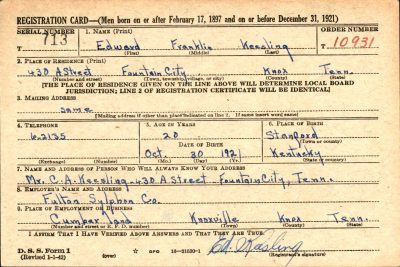 REGISTRATION CARD—(Men born on or after February 17, 1897 and on or before December 31, 1921)
SERIAL NUMBER 1. NAME (Print) ORDER NUMBER
713 Edward Franklin Keesling 10931
(First) (Middle) (Last)
2. PLACE OF RESIDENCE (Print)
430 A Street Fountain City Knox Tenn.
(Number and street) (Town, township, village, or city) (County) (State)
[THE PLACE OF RESIDENCE GIVEN ON THE LINE ABOVE WILL DETERMINE LOCAL BOARD
JURISDICTION; LINE 2 OF REGISTRATION CERTIFICATE WILL BE IDENTICAL]
3. MAILING ADDRESS
Same
[Mailing address if other than place indicated on line 2. If same insert word same]
4. TELEPHONE 5. AGE IN YEARS 6. PLACE OF BIRTH
6-2135 20 Stanford
DATE OF BIRTH (Town or county)
Oct. 30 1921 Kentucky
(Exchange) (Number) (Mo.) (Day) (Yr.) (State or country)
7. NAME AND ADDRESS OF PERSON WHO WILL ALWAYS KNOW YOUR ADDRESS
Mr. C. A. Keesling-430 A Street Fountain City, Tenn.
8. EMPLOYER'S NAME AND ADDRESS
Fulton Sylphon Co.
9. PLACE OF EMPLOYMENT OR BUSINESS
Cumberland Knoxville Knox Tenn.
(Number and street or R. F. D. number) (Town) (County) (State)
I AFFIRM THAT I HAVE VERIFIED ABOVE ANSWERS AND THAT THEY ARE TRUE.
D. S. S. Form 1
(Revised 1-1-42) (over) GPO 16—21630-1 (Registrant's signature)